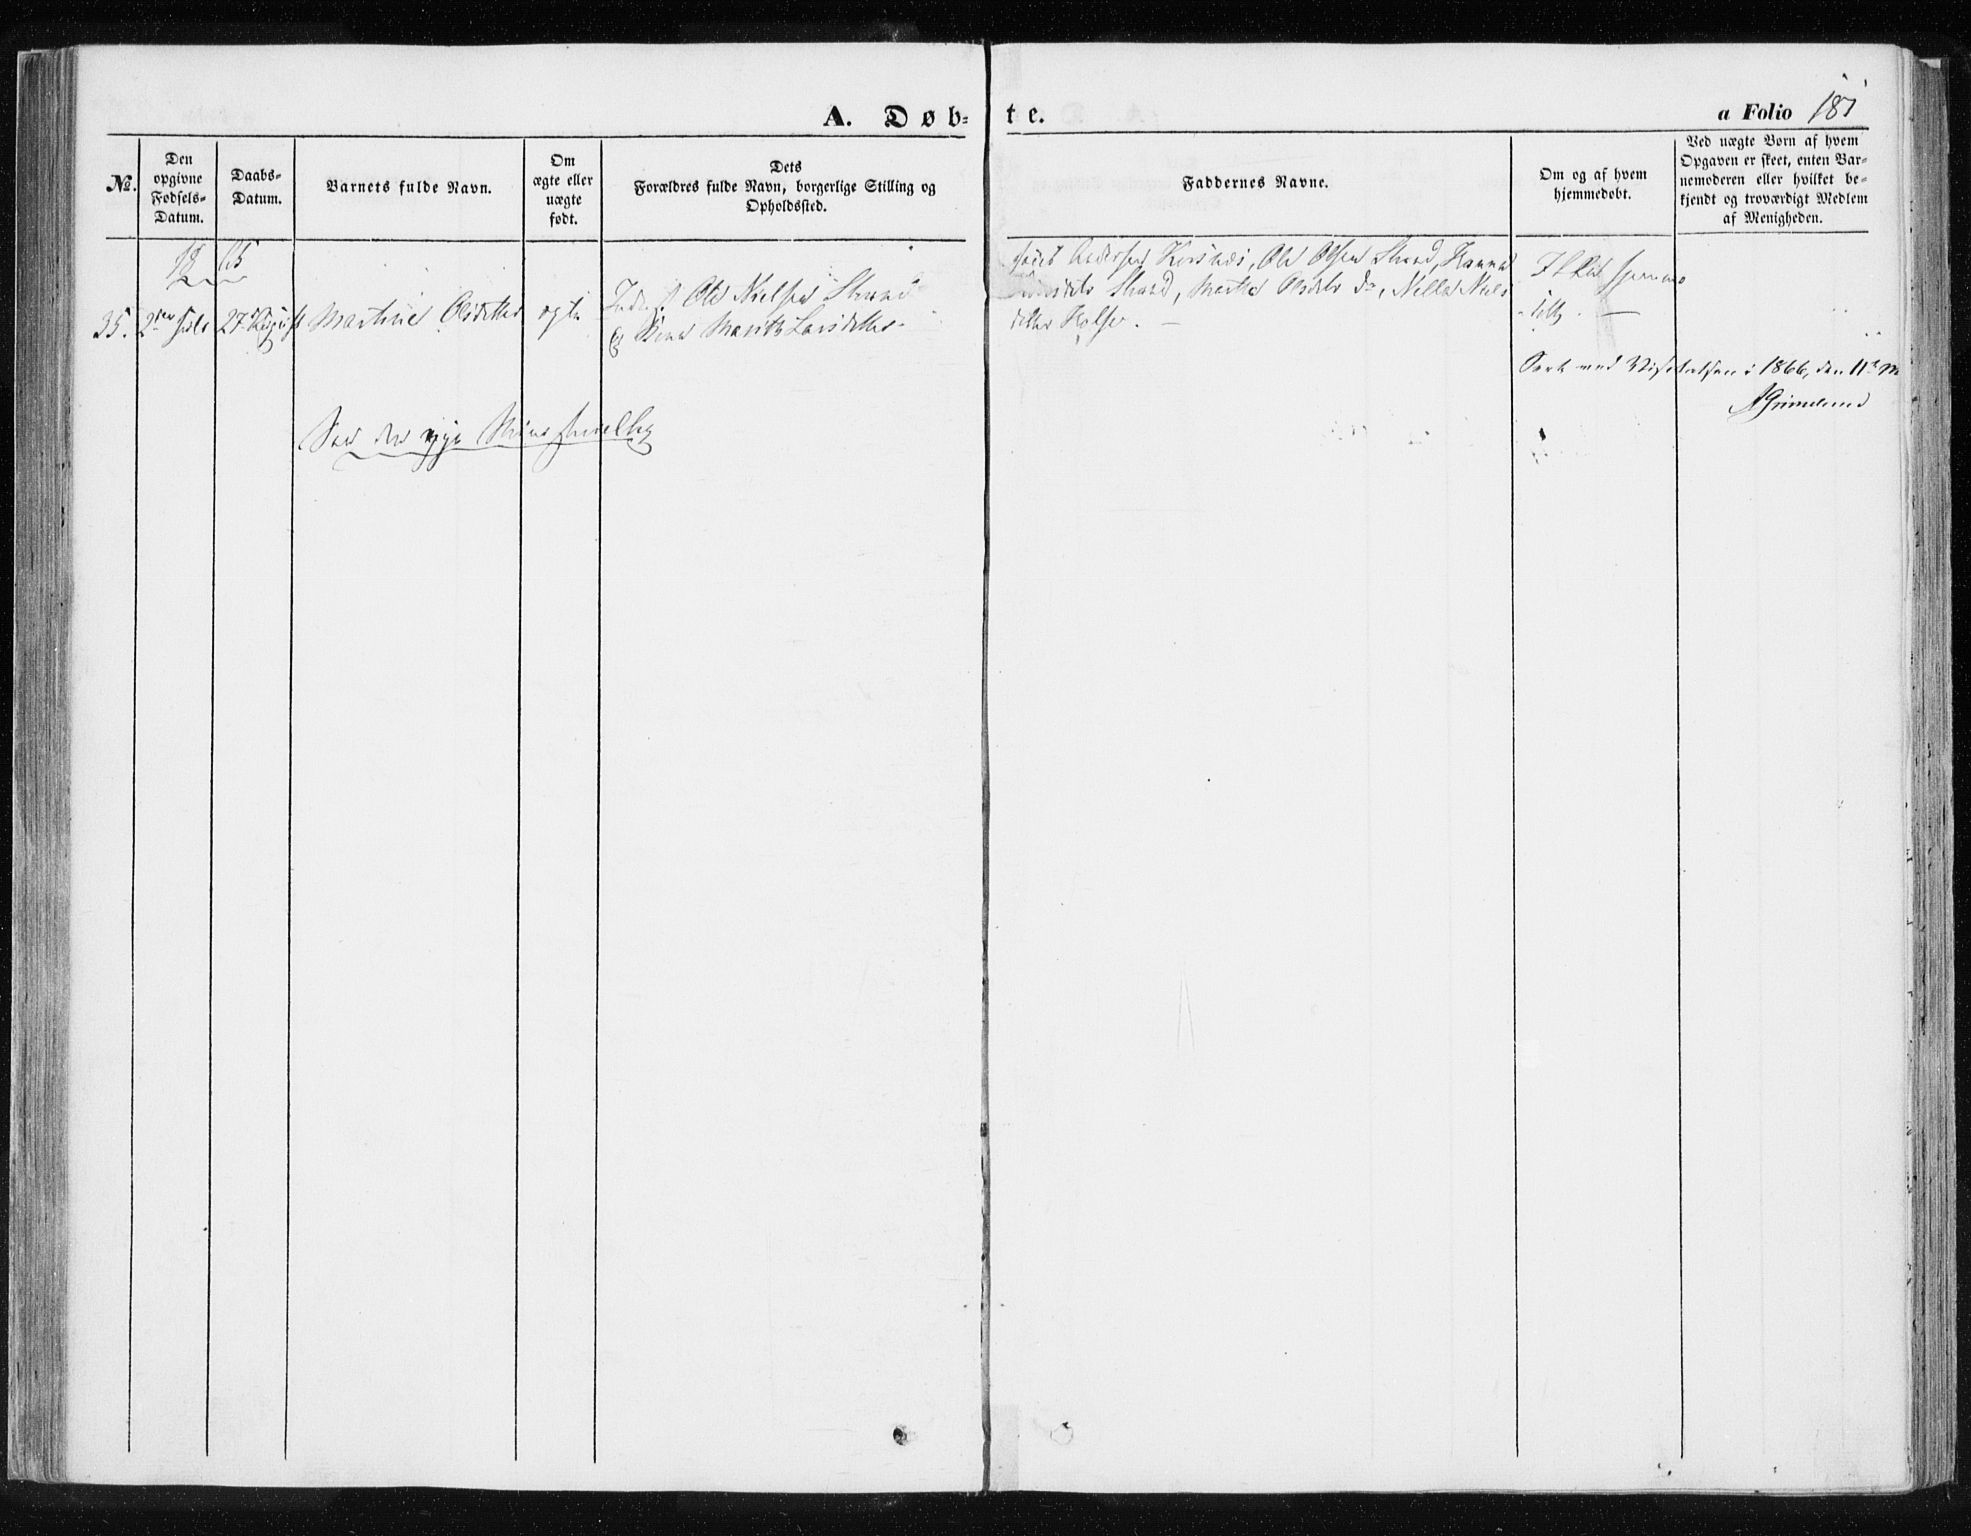 A. Døb-
te.
a Folio 181
No.
Den
opgivne
Fødsels-
Datum.
Daabs-
Datum.
Barnets fulde Navn.
Om
ægte eller
uægte
født.
Dets
Forældres fulde Navn, borgerlige Stilling og
Opholdssted.
Faddernes Navne.
Om og af hvem
hjemmedøbt.
Ved uægte Børn af hvem
Opgaven er skeet, enten Bar-
nemoderen eller hvilket be-
kjendt og troværdigt Medlem
af Menigheden.
18 65
35.
27 August
Martine Olsdatter
ægte
Ole Nielsen Strand
og Marith Larsdatter
Andersen Ole Olsen Strand, Hanna
Strand, Martha Olsdtr do, Niels
datter
Ikke hjemme
døbt. —
Seet ved Visitatsen i 1866, den 11te M
Grimelund
See den nye